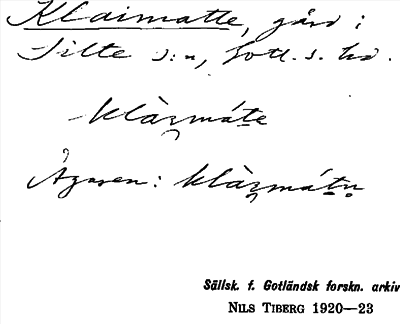 Klaimatte, gård i
Silte s:n, Gotl. s. hd.
klàɪmáte
Ägaren: klàɪmátn̥
Sällsk. f. Gotländsk forskn. arkiv
NILS TIBERG 1920—23